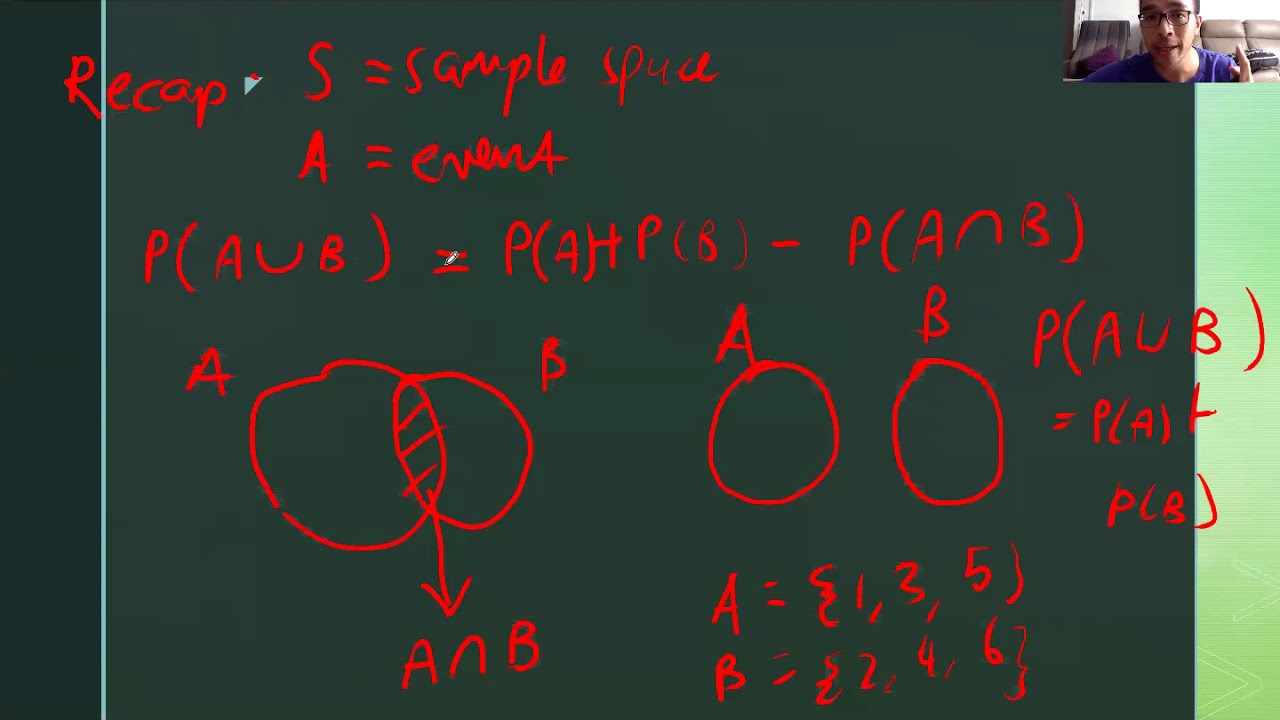 Recap. S = sample space
A = event
P(A∪B) = P(A)+P(B) - P(A∩B)
A B
A∩B
A B
P(A∪B)
= P(A)+
P(B)
A = {1, 3, 5}
B = {2, 4, 6}